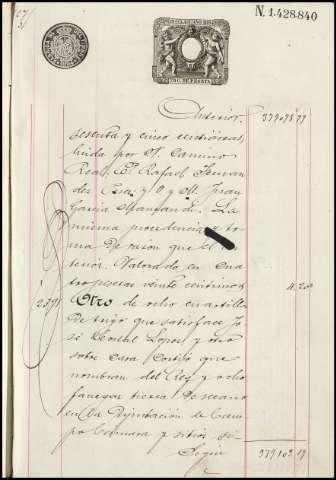 N. 1.428.840
Anterior. 379098 99
sesenta y cinco centiáreas,
linda por N. Camino
Real, E. Rafael Fernan-
dez Cria; y O. y M. Juan
Garcia Manzano. La
misma procedencia y to-
ma de razon que el an-
terior. Valorado en cua-
tro pesetas veinte centimos 4.20
Otro de ocho cuartillos
de trigo que satisface Jo-
sé Lopez y otro
sobre casa que
nombran del Rey y ocho
fanegas tierra de secano
en la Diputacion de Cam-
po Camara y sitios si-
Sigue 379103 19